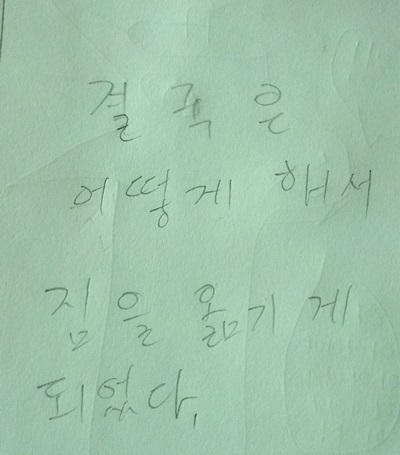 결국은
어떻게 해서
짐을 옮기게
되었다,